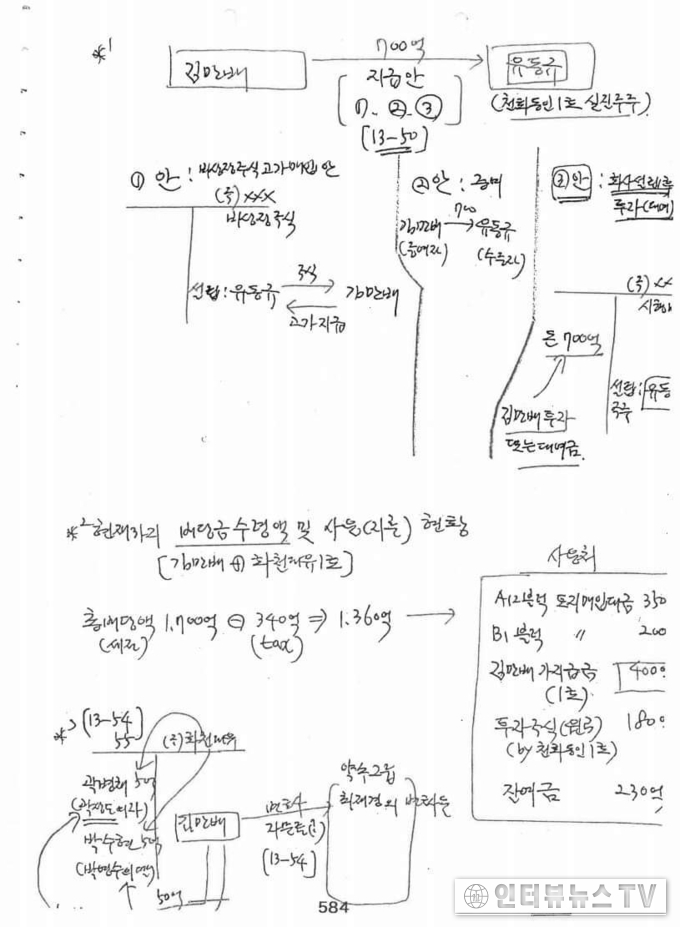 *1
김만배
700억
유동규
지급안
①. ②. ③
[13-50]
(천화동인 1호 실질주주)
① 안 : 비상장주식 고가매입 안
(주) XXX
비상장주식
설립 : 유동규
주식
김만배
고가지급
② 안 : 증여
700
김만배
유동규
(증여자)
(수증자)
③ 안 : 회사설립후
투자(대여)
(주) XX
돈 700억
설립 : 유동
주주
김만배 투자
또는 대여금
*2 현재까지 배당금수령액 및 사용(지출) 현황
[김만배 ⊕ 화천대유 1호]
총배당액 1,700억 ⊖ 340억 ⇒ 1,360억
(세전)
(tax)
사용처
A12블럭 토지매입대금 350
B1 블럭 〃 200
김만배 가지급금 400
(1호)
투자주식
180
(by 천화동인 1호)
잔여금 230억
*3 [13-54]
55
(주) 화천대유
50억
박수현 50억
김만배
[13-54]
약속그룹
50억
584
인터뷰뉴스TV